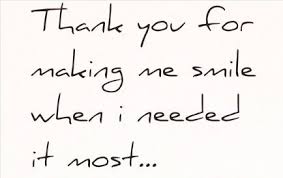 Thank you for
making me smile
when i needed
it most...